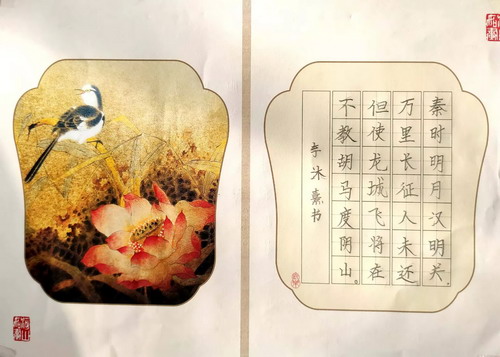 秦时明月汉明关,
万里长征人未还。
但使龙城飞将在,
不教胡马度阴山。
沐 书